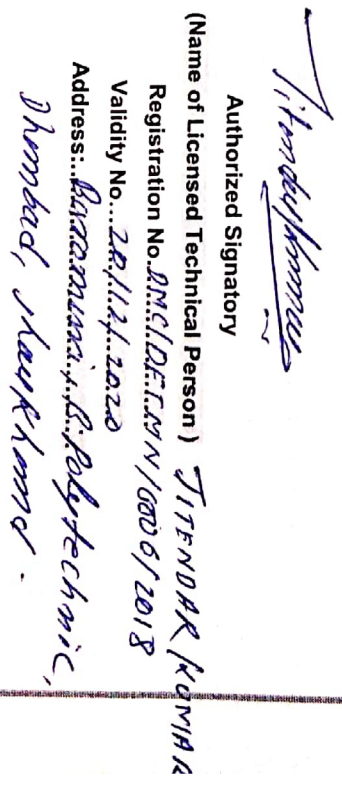 Jitendar Kumar
Authorized Signatory
(Name of Licensed Technical Person) JITENDAR KUMAR
Registration No. DMC/DET.MN/0006/2018
Validity No...20/12/2020
Address:... B. Polytechnic,
Dhanbad, Jharkhand.